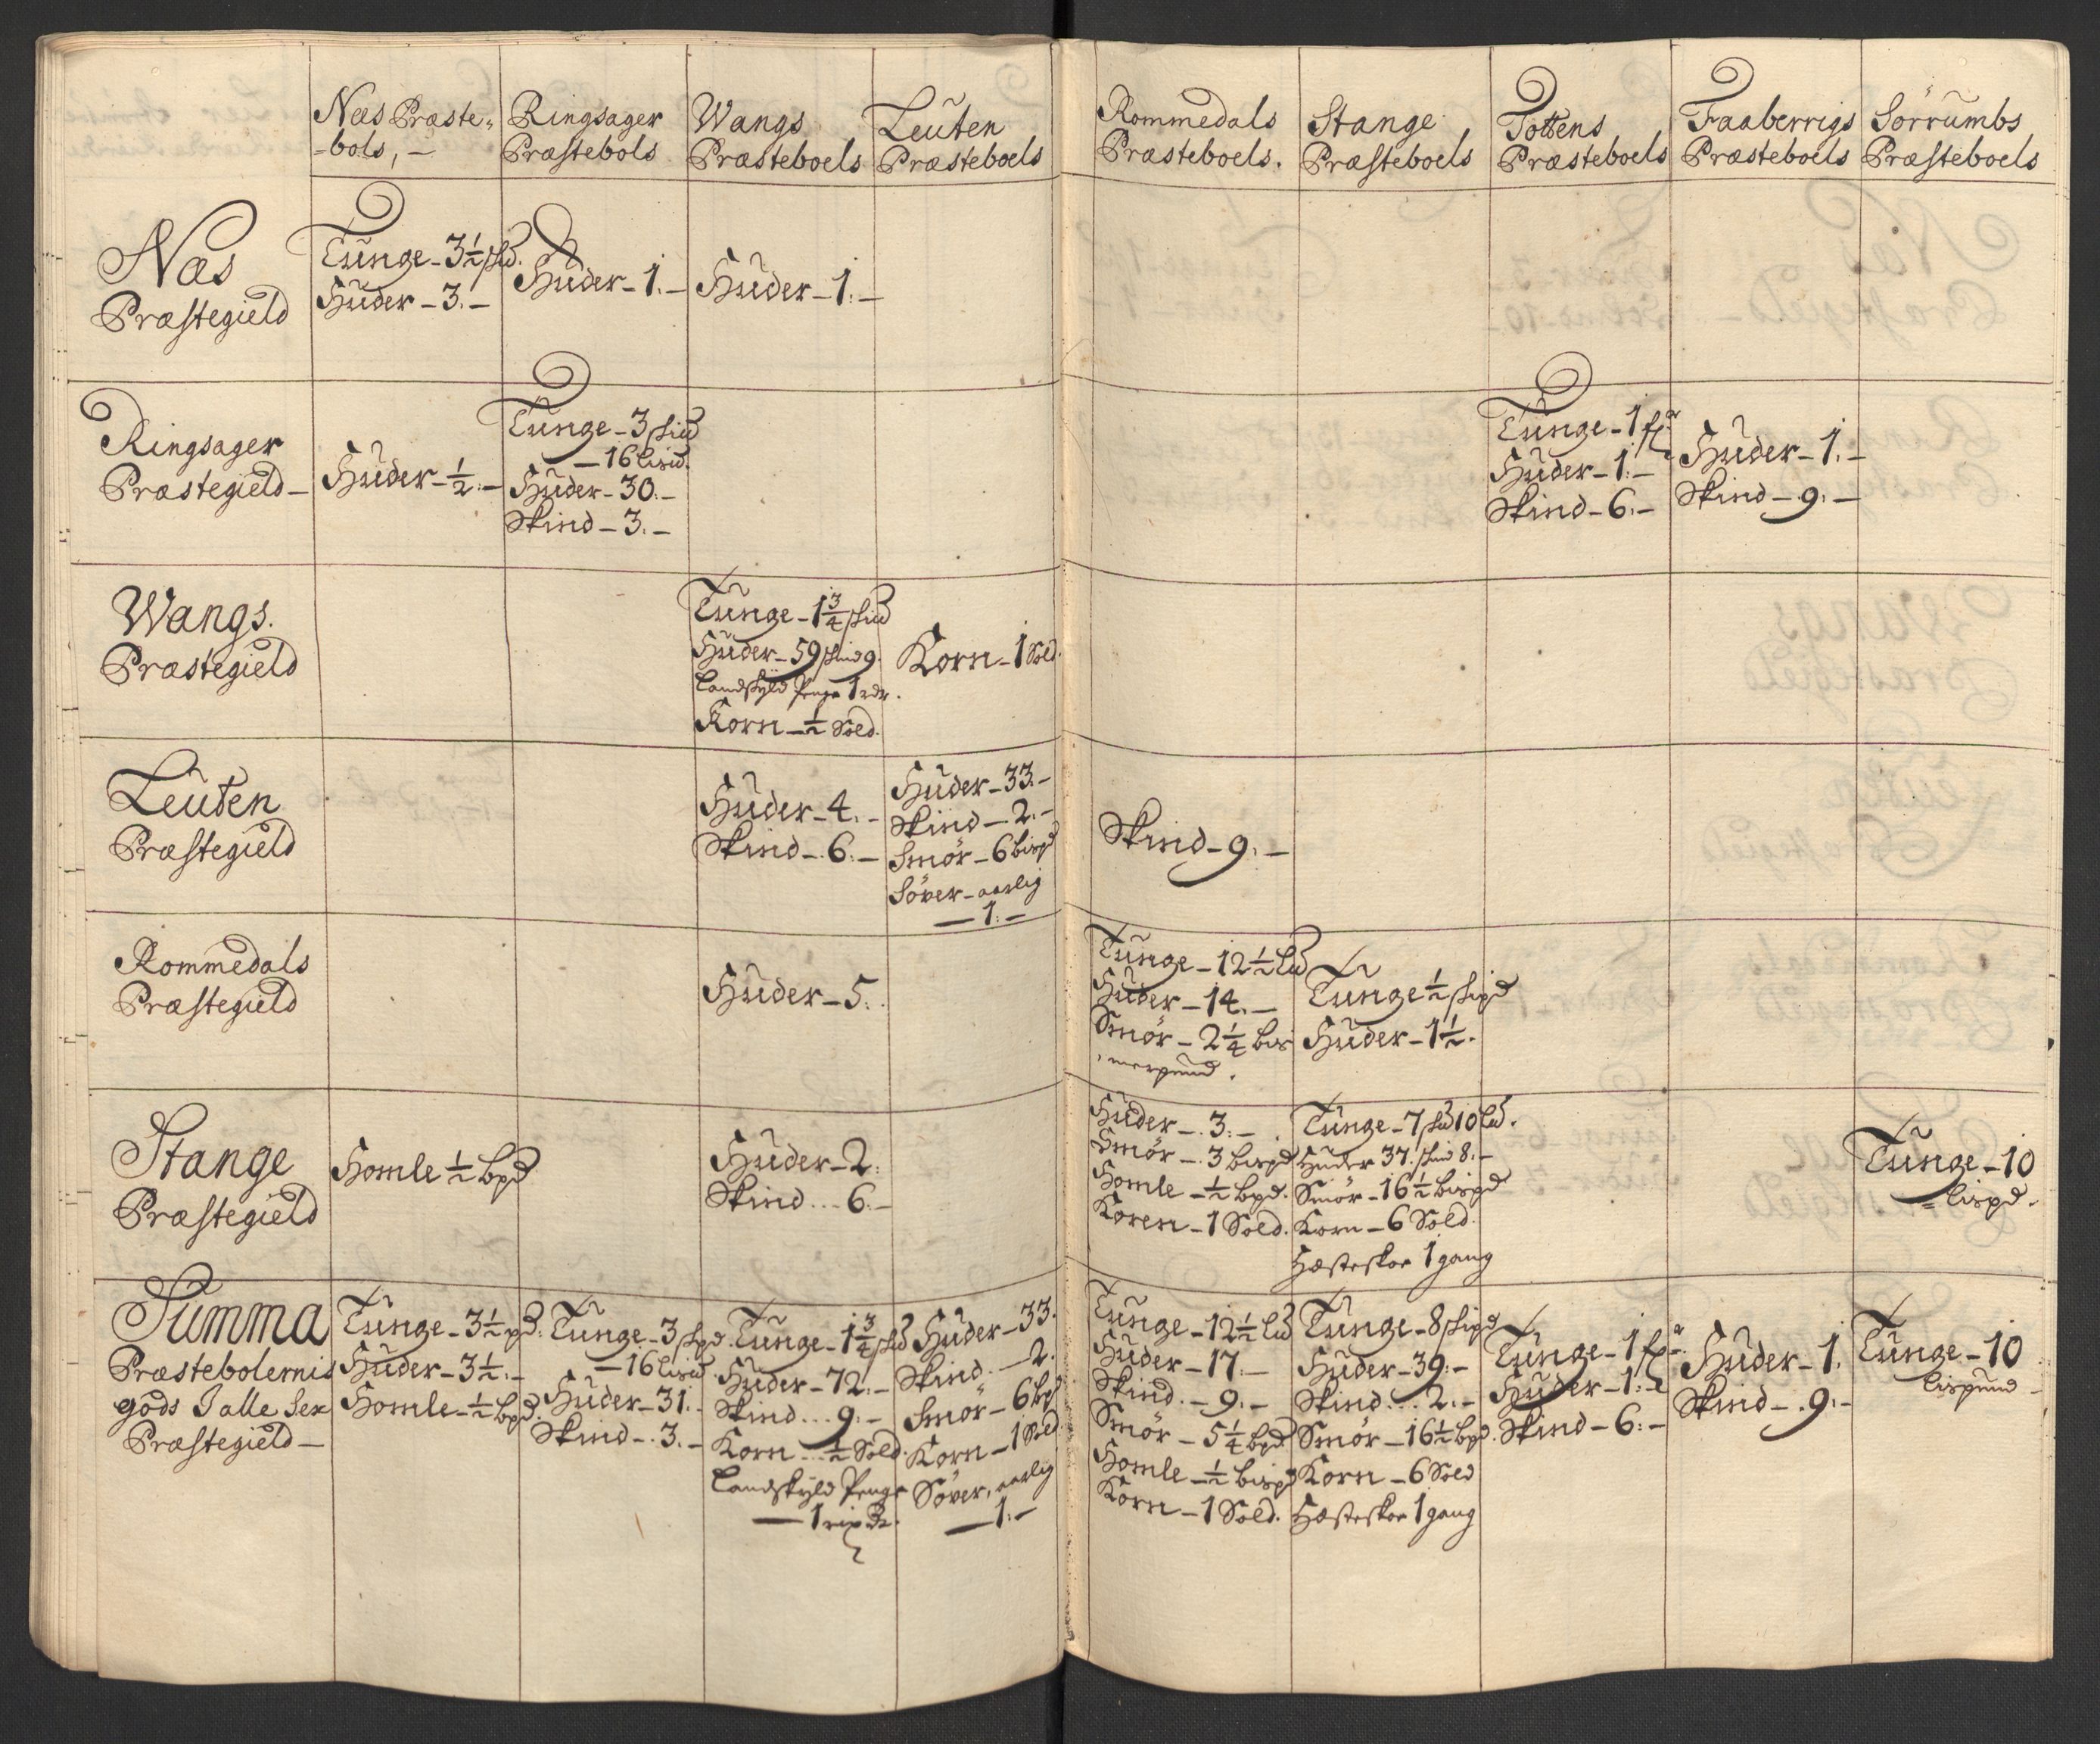 Næs Præste-
-bols, -
Ringsager
Præstebols
Wangs
Præsteboels
Leuten
Præsteboels
Rommedals
Præsteboels.
Stange
Præsteboels
Tottens
Præsteboels
Faaberrigs
Præsteboels
Sörrumbs
Præsteboels
Næs
Præstegield
Tunge - 3½ skd.
Huder - 3. -
Huder - 1. -
Huder - 1. -
Ringsager
Præstegield -
Huder - ½. -
Tunge - 3 skd
- 16 lispd.
Huder - 30. -
Skind - 3. -
Tunge - 1
Huder - 1. -
Skind - 6. -
Huder - 1. -
Skind - 9. -
Wangs.
Præstegield
Tunge - 1¾ skd
Huder - 59 skind 9.
Landskyld Penge 1 rdr.
Korn - ½ Sold.
Korn - 1 Sold.
Leuten
Præstegield
Huder - 4. -
Skind - 6. -
Huder - 33. -
Skind - 2. -
Smör - 6 bispd
Söver - aarlig
- 1. -
Skind - 9. -
Rommedals
Præstegield
Huder - 5.
Tunge - 12½ Ld
Huder - 14. -
Smör - 2¼ bis
merpund.
Tunge ½ skpd
Huder - 1½.
Stange
Præstegield
Homle ½ bpd
Huder - 2.
Skind ... 6. -
Huder - 3. -
Smör - 3 bispd
Homle - ½ bpd.
Koren - 1 Sold.
Tunge - 7 skd 10 Ld.
Huder 37. skind 8. -
Smör - 16½ bispd
Korn - 6 Sold.
Hæsteskoe 1 gang
Tunge - 10
- lispd.
Summa
Præstebolernis
gods I alle Sex
Præstegield -
Tunge - 3½ pd.
Huder - 3½. -
Homle - ½ bpd.
Tunge - 3 skpd.
- 16 lispd.
Huder - 31. -
Skind - 3. -
Tunge - 1¾ skd
Huder - 72. -
Skind ... 9. -
Korn ... ½ Sold.
Landskyld Penge
- 1 rixdr.
Huder - 33.
Skind. - 2.
Smör - 6 bpd
Korn - 1 Sold
Söver, aarlig
- 1. -
Tunge - 12½ Ld
Huder - 17. -
Skind. - 9. -
Smör - 5¼ bpd.
Homle - ½ bispd
Korn - 1 Sold.
Tunge - 8 skpd
Huder - 39. -
Skind ... 2. -
Smör - 16½ bpd.
Korn - 6 Sold
Hæsteskoe 1 gang
Tunge - 1
Huder - 1.
Skind - 6. -
Huder - 1.
Skind - 9. -
Tunge - 10
lispund -